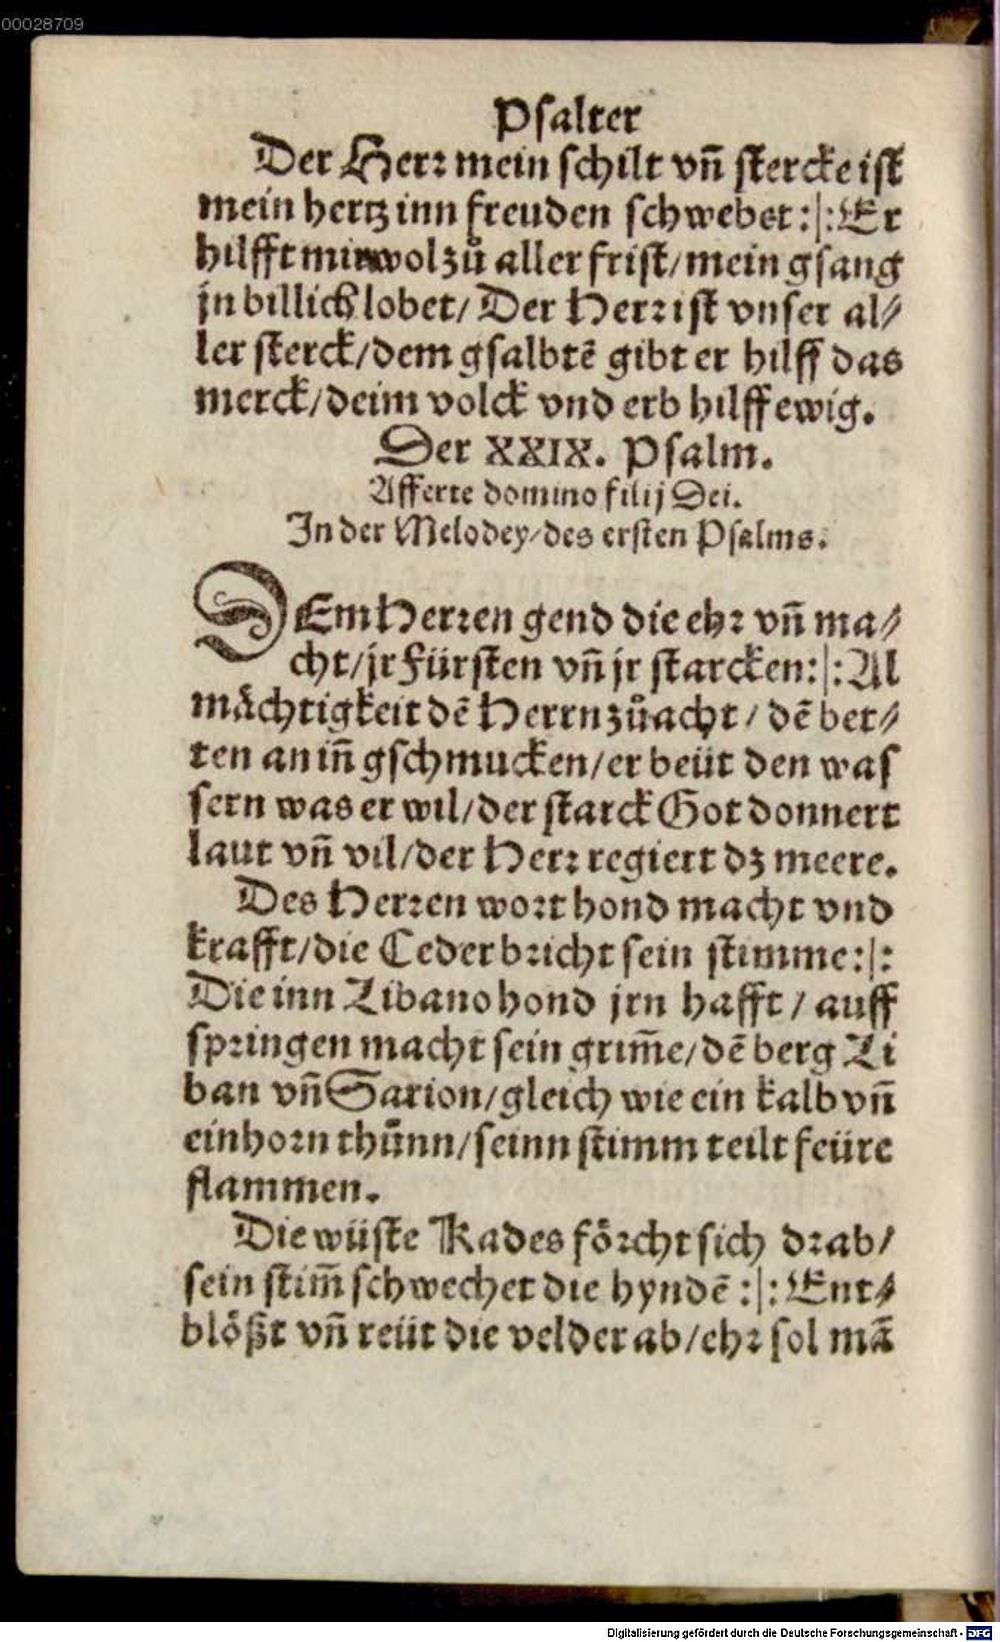 00028709
Psalter
Der Herr mein schilt vñ stercke ist
mein hertz inn freuden schwebet :|: Er
hilfft mir wol zů aller frist / mein gsang
jn billich lobet / Der Herr ist vnser al⸗
ler sterck / dem gsalbtē gibt er hilff das
merck / deim volck vnd erb hilff ewig.
Der XXIX. Psalm.
Afferte domino filij Dei.
In der Melodey / des ersten Psalms.
DEm Herren gend die ehr vñ ma⸗
cht / jr Fürsten vñ jr starcken :|: Al
mächtigkeit dē Herrn zů acht / dē bet⸗
ten an iñ gschmucken / er beüt den was
sern was er wil / der starck Got donnert
laut vñ vil / der Herr regiert dz meere.
Des Herren wort hond macht vnd
krafft / die Ceder bricht sein stimme :|:
Die inn Libano hond jrn hafft / auff
springen macht sein grim̄e / dē berg Li
ban vñ Sarion / gleich wie ein kalb vñ
einhorn thünn / seinn stimm teilt feüre
flammen.
Die wüste Kades förcht sich drab /
sein stim̄ schwechet die hyndē :|: Ent⸗
blößt vñ reüt die velder ab / ehr sol mā
Digitalisierung gefördert durch die Deutsche Forschungsgemeinschaft - DFG